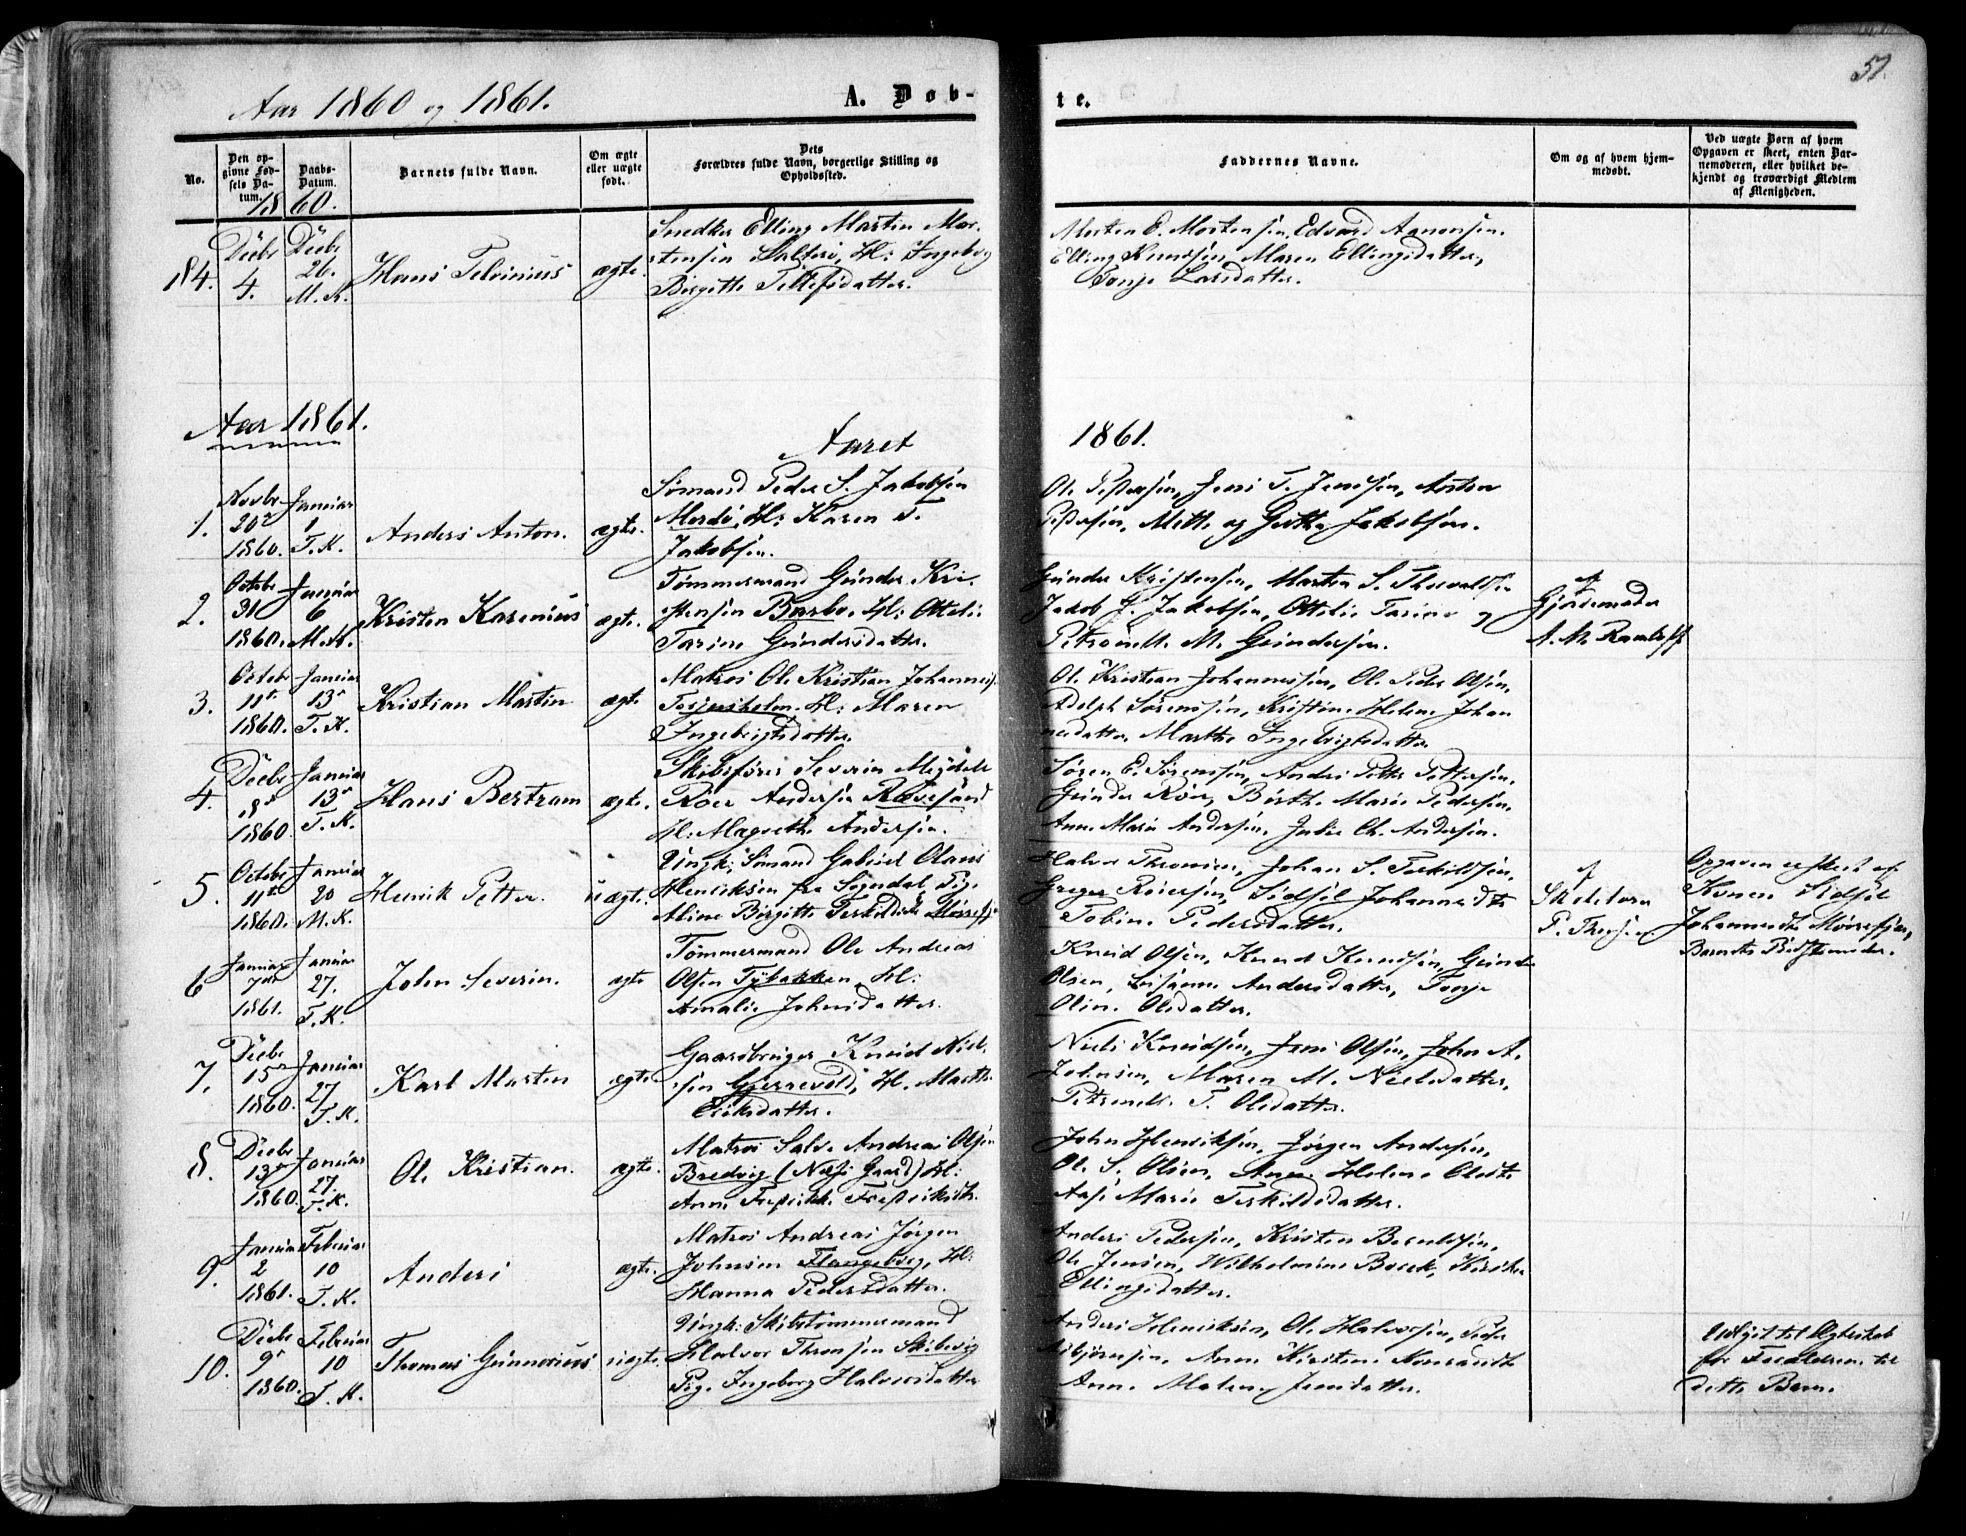 57.
Aar 1860 og 1861.
A. Døb-
te.
No.
Den op-
givne Fød-
sels Da-
tum.
Daabs-
Datum.
Barnets fulde Navn.
Om ægte
eller uægte
født.
Dets
Forældres fulde Navn, borgerlige Stilling og
Opholdssted.
Faddernes Navne.
Om og af hvem hjem-
medøbt.
Ved uægte Børn af hvem
Opgaven er skeet, enten Bar-
nemoderen, eller hvilket be-
kjendt og troværdigt Medlem
af Menigheden.
1860.
84.
Decbr
4.
Decbr
26.
M. K.
Hans
ægte.
Snedker Elling Martin Mor-
tensen H: Ingeborg
Birgitte
Morten E. Mortensen, Edvard Aanonsen.
Elling Knudsen, Maren Ellingsdatter,
Tonje Larsdatter.
Aar 1861.
Aaret
1861.
1.
Novbr
20
1860.
Januar
1
T. K.
Anders Anton.
ægte.
Sømand Peder S. Jakobsen
Merdø, H: Karen T.
Jakobsen.
Ol. Pedersen, Jens T. Jensen, Anton
Pedersen, Mette og Jakobsen.
2.
Octobr
31
1860.
Januar
6
M. K.
Kristen Karenius
ægte.
Tømmermand Gunder Kri-
stensen Barbo, H: Otteli.
Tarine Gundersdatter.
Gunder Kristensen, Morten S. Thorvaldsen
Jakob G. Jakobsen, Ottelie Tarine og
M. Gundersen.
af
Gjordemoder
3.
Octobr
11te
1860.
Januar
13
T. K.
Kristian Martin
ægte.
Matros Ole Kristian Johannes.
Terjusholm. H: Maren
Ingebrigtsdatter.
Ol. Kristian Johannessen, Ol. Peder Olsen,
Adolph Sørenssen, Kristine Helene Johan
nesdatter Marthe Ingebrigtsdatter
4.
Decbr
8
1860.
Januar
13
T. K.
Hans Bertram
ægte.
Skibsfører Severin
Røer Andersen Rævesand
H: Andersen.
Søren E. Sørenssen, Pettersen,
Gunder Røer, Birthe Marie Pedersen,
Anne Marie Andersen, Julie Ch. Andersen.
5.
Octobr
11te
1860.
Januar
20
M. K.
Henrik Petter.
uægte.
Ungk: Sømand Gabriel Olaus
Henriksen fra Sogndal, Pig.
Aline Birgitte Terkildsdtr
Halvor Johan S. Terkildsen,
Greger Røiersen, Sidsel Johannesdtr
Tobine Pedersdatter.
af
Skolelærer
P.
Opgaven er skeet af
Konen Sidsel
Johannesdtr
Barnets Bedstemoder.
6
Januar
7de
1861.
Januar
27.
T. K.
John Severin.
ægte
Tømmermand Ole Andreas
Olsen Tybakken, H:
Amalie Johnsdatter.
Knud Olsen, Knud Knudsen, Gunder
Olsen, Andersdatter, Tonje
Oline Olsdatter.
7.
Decbr
15
1860.
Januar
27
T. K.
Karl Martin
ægte
Gaardbruger Knud Niel-
sen Gjerrevold, H. Marthe
Eriksdatter.
Niels Knudsen, Jens Olsen, John A.
Johnsen, Maren M. Nielsdatter,
T. Olsdatter.
8.
Decbr
13
1860.
Januar
27.
T. K.
Ole Kristian.
ægte.
Matros Salve Andreas Olsen
Bredvig H:
Anne Fredrikke Fredriksdtr.
John Henriksen, Jørgen Andersen,
Ol. S. Olsen, Anne Helene Olsdtr
Aase Marie Terkildsdatter.
9.
Januar
2
1861.
Februar
10
T. K.
Anders
ægte.
Matros Andreas Jørgen
Johnsen Flangeborg, H:
Hanna Pedersdatter.
Anders Pedersen, Kristen Berntsen,
Ole Jensen, Wilhelmine
Ellingsdatter.
10.
Decbr
9
1860.
Februar
10
T. K.
Thomas Gunnerius
uægte.
Ungk: Skibstømmermand
Halvor Thronsen Skilevig
Pig. Ingeborg Halvorsdatter
Anders Henriksen, Ol. Halvorsen, Peder
Asbjørnsen, Anne Kirstine
Anne Malene Jensdatter.
Udlyst til Ægteskab
for Forældrene til
dette Barn.